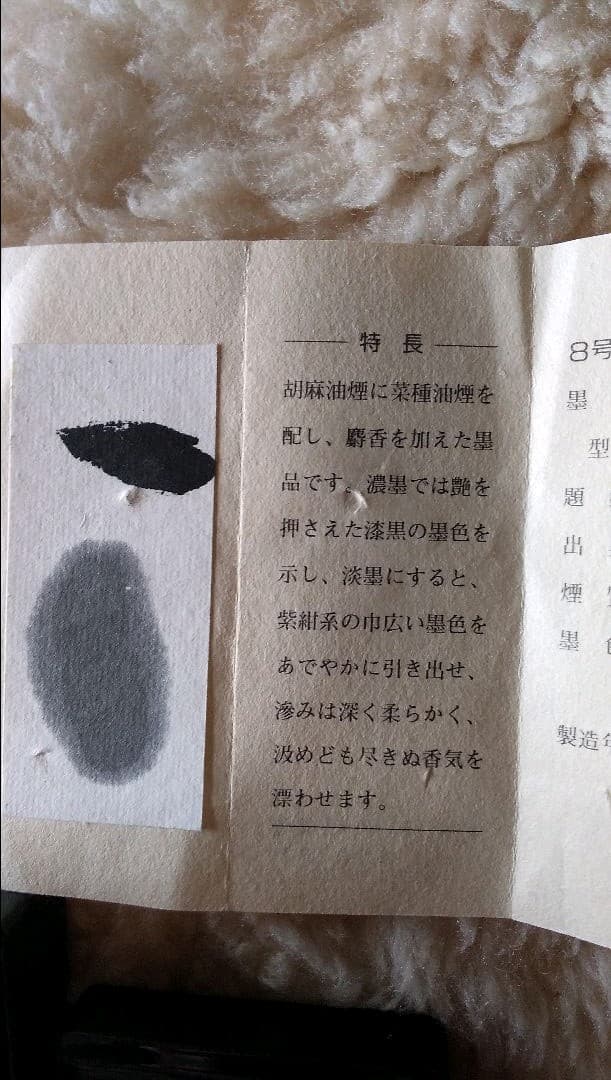 特長
胡麻油煙に菜種油煙を
配し、麝香を加えた墨
品です。濃墨では艶を
押さえた漆黒の墨色を
示し、淡墨にすると、
紫紺系の巾広い墨色を
あでやかに引き出せ、
滲みは深く柔らかく、
汲めども尽きぬ香気を
漂わせます。
8号
墨
型
題
出
煙
墨
製造年